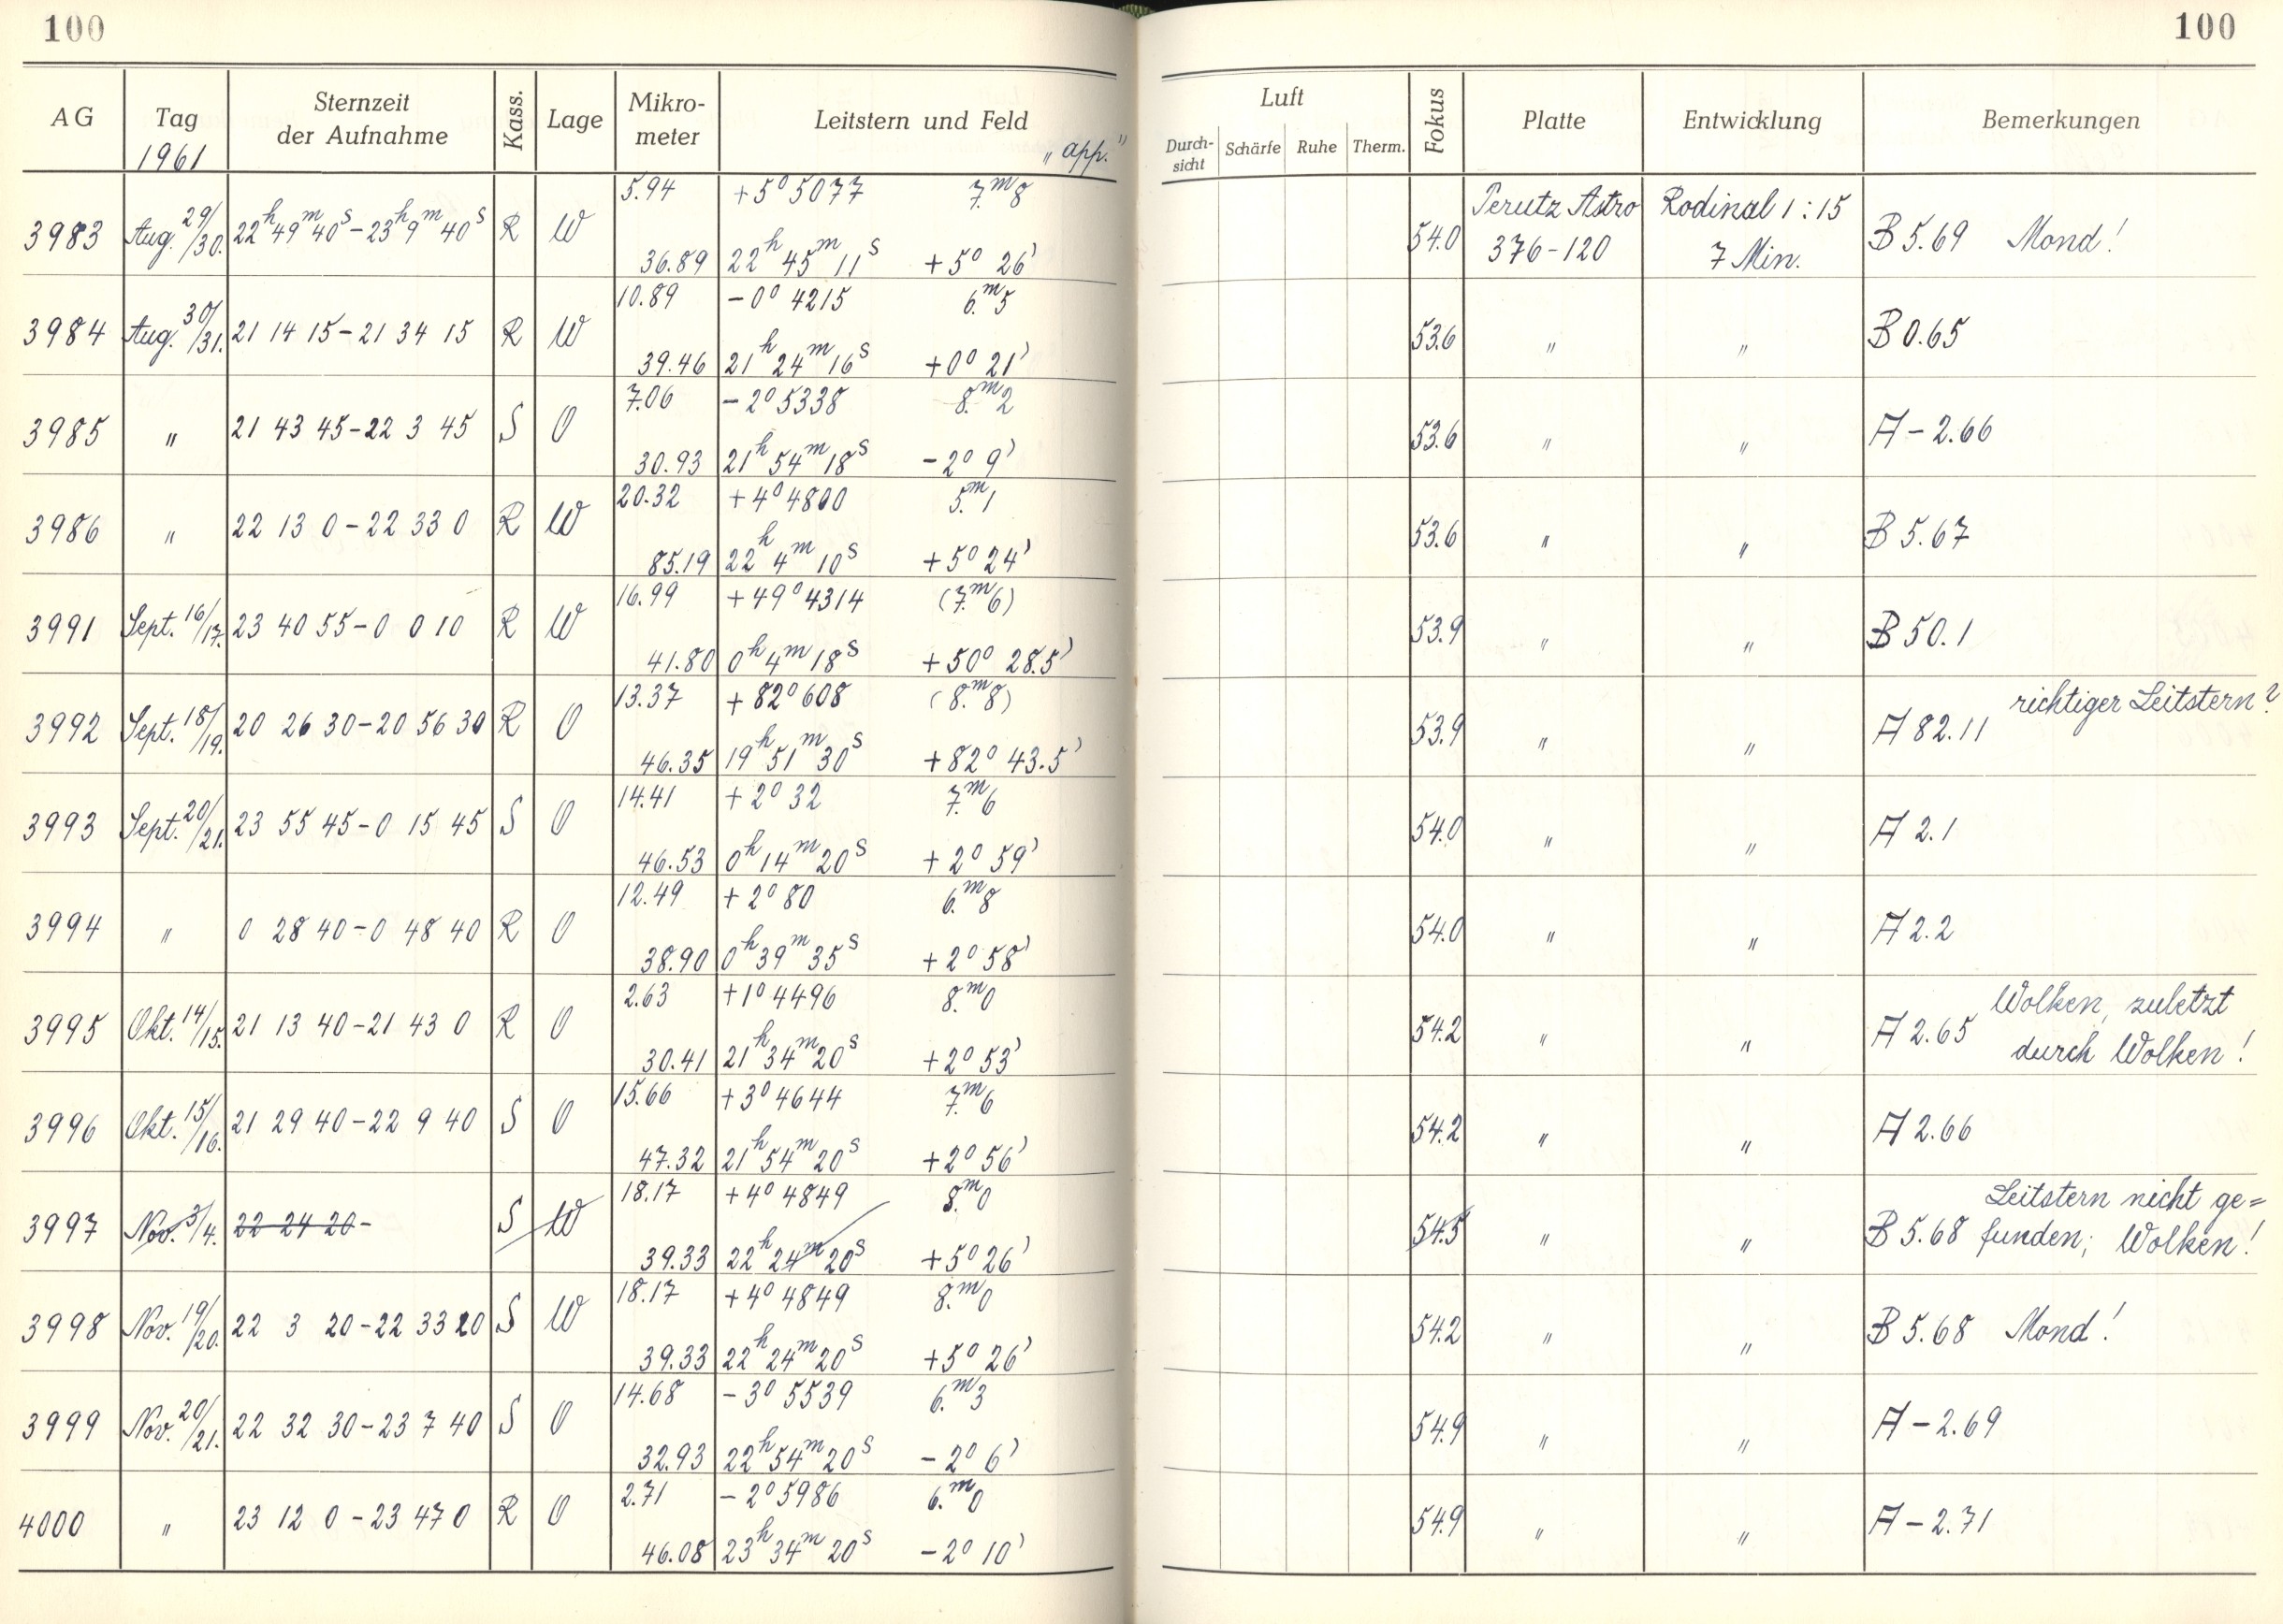 100
100
AG Tag 1961 Sternzeit der Aufnahme Kass. Lage Mikrometer Leitstern und Feld „app." Luft Durchsicht Schärfe Ruhe Therm. Fokus Platte Entwicklung Bemerkungen
5.94 +5° 5077 7.ᵐ8 Perutz Astro Rodinal 1:15
3983 Aug. 29/30. 22ʰ49ᵐ40ˢ-23ʰ9ᵐ40ˢ R W 54.0 376-120 7 Min. B 5.69 Mond!
36.89 22ʰ 45ᵐ 11ˢ +5° 26'
10.89 -0° 4215 6.ᵐ5
3984 Aug. 30/31. 21 14 15-21 34 15 R W 53.6 " " B 0.65
39.46 21ʰ 24ᵐ 16ˢ +0° 21'
7.06 -2° 5338 8.ᵐ2
3985 " 21 43 45-22 3 45 S O 53.6 " " A -2.66
30.93 21ʰ 54ᵐ 18ˢ -2° 9'
20.32 +4° 4800 5.ᵐ1
3986 " 22 13 0-22 33 0 R W 53.6 " " B 5.67
85.19 22ʰ 4ᵐ 10ˢ +5° 24'
16.99 +49° 4314 (7.ᵐ6)
3991 Sept. 16/17. 23 40 55-0 0 10 R W 53.9 " " B 50.1
41.80 0ʰ 4ᵐ 18ˢ +50° 28.5'
13.37 +82° 608 (8.ᵐ8) richtiger Leitstern?
3992 Sept. 18/19. 20 26 30-20 56 30 R O 53.9 " " A 82.11
46.35 19ʰ 51ᵐ 30ˢ +82° 43.5'
14.41 +2° 32 7.ᵐ6
3993 Sept. 20/21. 23 55 45-0 15 45 S O 54.0 " " A 2.1
46.53 0ʰ 14ᵐ 20ˢ +2° 59'
12.49 +2° 80 6.ᵐ8
3994 " 0 28 40-0 48 40 R O 54.0 " " A 2.2
38.90 0ʰ 39ᵐ 35ˢ +2° 58'
2.63 +1° 4496 8.ᵐ0 Wolken, zuletzt
3995 Okt. 14/15. 21 13 40-21 43 0 R O 54.2 " " A 2.65 durch Wolken!
30.41 21ʰ 34ᵐ 20ˢ +2° 53'
15.66 +3° 4644 7.ᵐ6
3996 Okt. 15/16. 21 29 40-22 9 40 S O 54.2 " " A 2.66
47.32 21ʰ 54ᵐ 20ˢ +2° 56'
18.17 +4° 4849 8.ᵐ0 Leitstern nicht ge=
3997 Nov. 3/4. 22 24 20- S W 54.5 " " B 5.68 funden; Wolken!
39.33 22ʰ 24ᵐ 20ˢ +5° 26'
18.17 +4° 4849 8.ᵐ0
3998 Nov. 19/20. 22 3 20-22 33 20 S W 54.2 " " B 5.68 Mond!
39.33 22ʰ 24ᵐ 20ˢ +5° 26'
14.68 -3° 5539 6.ᵐ3
3999 Nov. 20/21. 22 32 30-23 7 40 S O 54.9 " " A -2.69
32.93 22ʰ 54ᵐ 20ˢ -2° 6'
2.71 -2° 5986 6.ᵐ0
4000 " 23 12 0-23 47 0 R O 54.9 " " A -2.71
46.08 23ʰ 34ᵐ 20ˢ -2° 10'